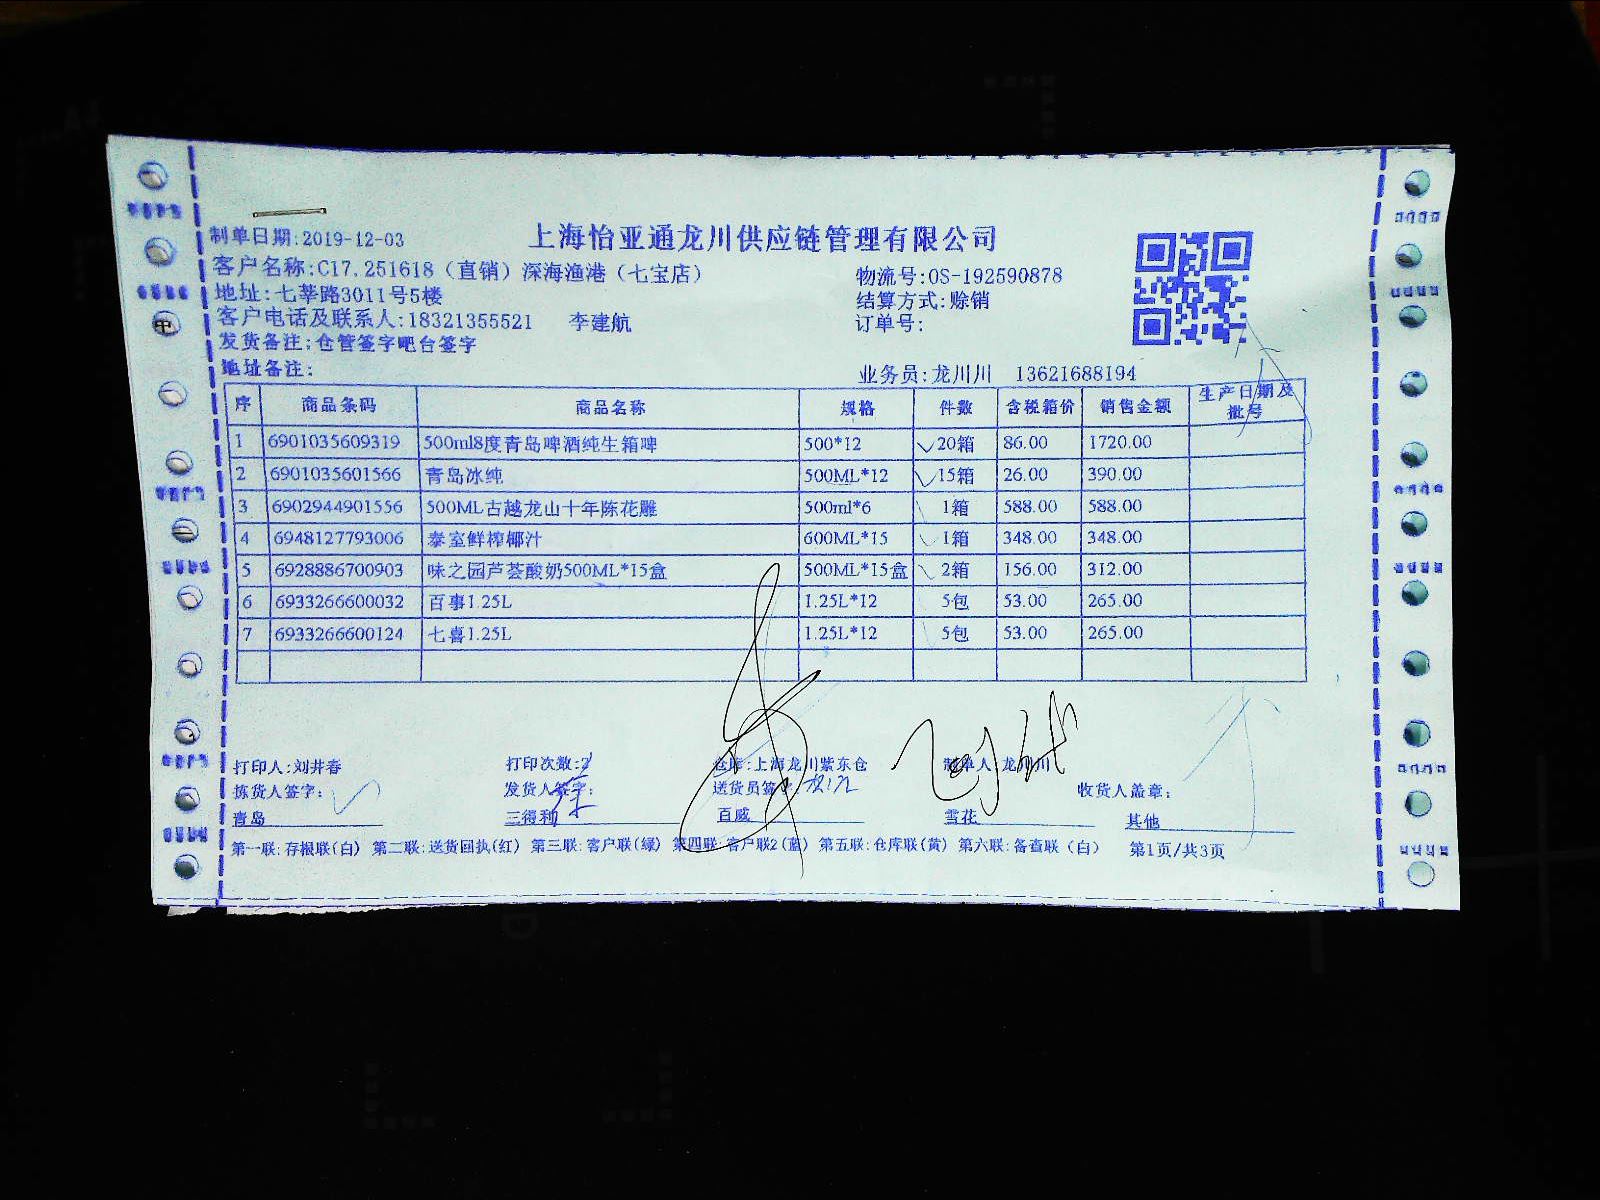 制单日期:2019-12-03
上海怡亚通龙川供应链管理有限公司
客户名称:C17.251618（直销）深海渔港（七宝店）
物流号:OS-192590878
地址:七莘路3011号5楼
结算方式:赊销
客户电话及联系人:18321355521 李建航
订单号:
发货备注:仓管签字吧台签字
地址备注:
业务员:龙川川 13621688194
序 商品条码 商品名称 规格 件数 含税箱价 销售金额 生产日期及批号
1 6901035609319 500ml8度青岛啤酒纯生箱啤 500*12 20箱 86.00 1720.00
2 6901035601566 青岛冰纯 500ML*12 15箱 26.00 390.00
3 6902944901556 500ML古越龙山十年陈花雕 500ml*6 1箱 588.00 588.00
4 6948127793006 泰室鲜榨椰汁 600ML*15 1箱 348.00 348.00
5 6928886700903 味之园芦荟酸奶500ML*15盒 500ML*15盒 2箱 156.00 312.00
6 6933266600032 百事1.25L 1.25L*12 5包 53.00 265.00
7 6933266600124 七喜1.25L 1.25L*12 5包 53.00 265.00
打印人:刘井春 打印次数:2 仓库:上海龙川紫东仓 制单人 龙川川
拣货人签字: 发货人签字: 送货员签字: 收货人盖章:
青岛 三得利 百威 雪花 其他
第一联:存根联(白) 第二联:送货回执(红) 第三联:客户联(绿) 第四联:客户联2(蓝) 第五联:仓库联(黄) 第六联:备查联（白） 第1页/共3页